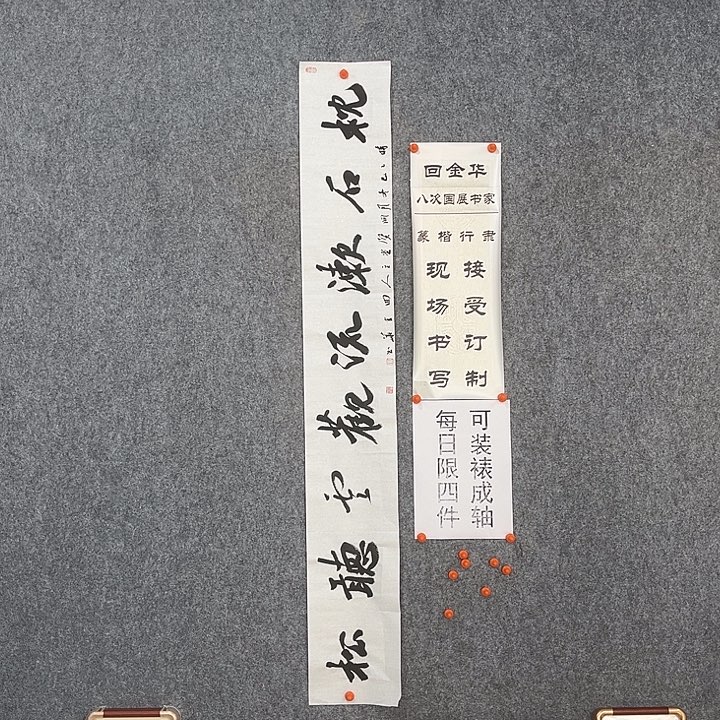 枕石漱流觀雲聽松
回金华
八次国展书家
篆楷行隶
接受订制
现场书写
可装裱成轴
每日限四件